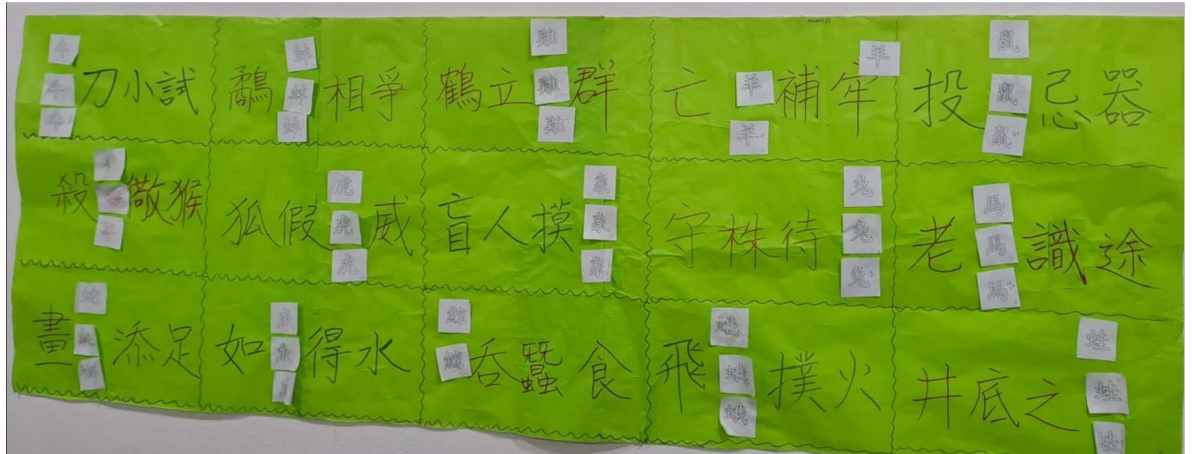 牛 牛 牛 刀小試 鷸 蚌 蚌 蚌 相爭 鶴立 雞 雞 雞 群 亡 羊 羊 補牢 羊 投 鼠 鼠 鼠 忌器
殺 儆猴 狐假 虎 虎 虎 威 盲人摸 象 象 象 守株待 兔 兔 兔 老 馬 馬 馬 識途
畫 蛇 添足 如 魚 得水 吞蠶食 飛 蛾 蛾 蛾 撲火 井底之 蛙 蛙 蛙